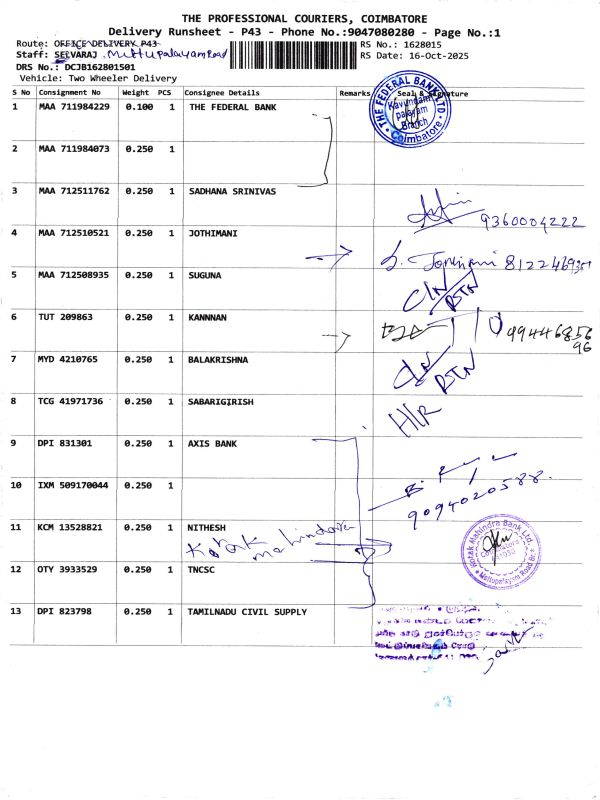 THE PROFESSIONAL COURIERS, COIMBATORE
Delivery Runsheet - P43 - Phone No.:9047080280 - Page No.:1
Route: OFFICE DELIVERY P43
Staff: SELVARAJ . Mettupalayam Road
RS No.: 1628015
RS Date: 16-Oct-2025
DRS No.: DCJB162801501
Vehicle: Two Wheeler Delivery
S No Consignment No Weight PCS Consignee Details Remarks Seal & Signature
1 MAA 711984229 0.100 1 THE FEDERAL BANK
THE FEDERAL BANK LTD
Kavundam
palayam
Branch
Coimbatore
2 MAA 711984073 0.250 1
3 MAA 712511762 0.250 1 SADHANA SRINIVAS
9360004222
4 MAA 712510521 0.250 1 JOTHIMANI
5 MAA 712508935 0.250 1 SUGUNA
6 TUT 209863 0.250 1 KANNNAN
99446856
96
7 MYD 4210765 0.250 1 BALAKRISHNA
8 TCG 41971736 0.250 1 SABARIGIRISH
9 DPI 831301 0.250 1 AXIS BANK
10 IXM 509170044 0.250 1
9094020588
11 KCM 13528821 0.250 1 NITHESH
Kotak mahindara
Kotak Mahindra Bank Ltd.
Mettupalayam Road Br.
12 OTY 3933529 0.250 1 TNCSC
13 DPI 823798 0.250 1 TAMILNADU CIVIL SUPPLY